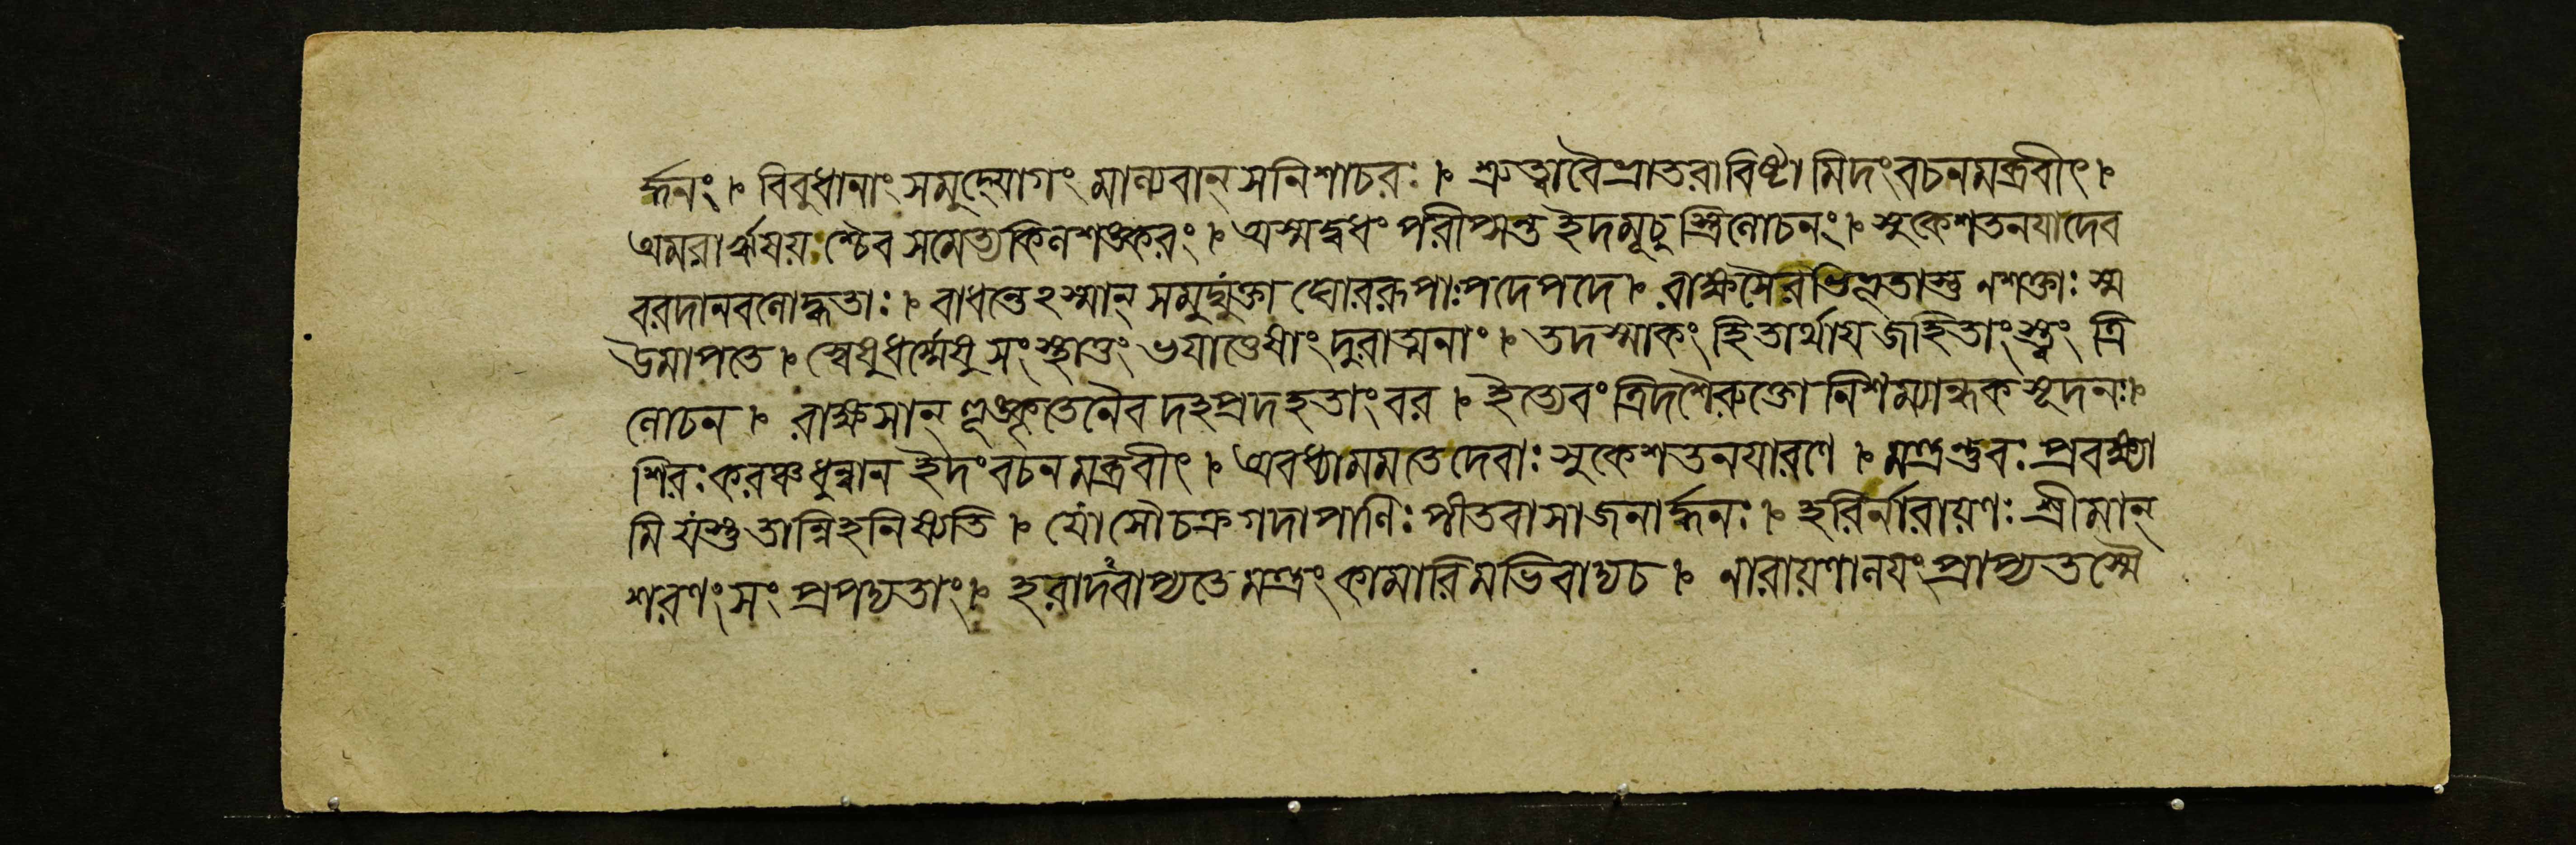 ৰ্দ্দনং। বিবুধানাং সমুদ্যোগং মাল্যবান্ সনিশাচরঃ। শ্রুত্বাবৈভ্রাতরাবিষ্টা মিদংবচনমব্রবীৎ।
অমরাঋষয়শ্চৈব সমেত্যকিলশঙ্করং। অস্মদ্বধং পরীপ্সন্ত ইদমূচুস্ত্রিলোচনং। সুকেশতনযাদেব
বরদানবলোদ্ধতাঃ। বাধন্তেঽস্মান্ সমুদ্যুক্তা ঘোররূপাঃপদেপদে। রাক্ষসৈরভিভূতাস্তু নশক্তাঃ স্ম
উমাপতে। স্বেষুধর্ম্মেষু সংস্থাতুং ভযাত্তেষাং দুরাত্মনাং। তদস্মাকং হিতার্থায় জহিতাংস্ত্বং ত্রি
লোচন। রাক্ষসান্ হূঙ্কৃতেনৈব দহপ্রদহতাংবর। ইত্যেবং ত্রিদশৈরুক্তো নিশম্যান্ধক সূদনঃ।
শিরঃকরঞ্চধুন্বান ইদংবচনমব্রবীৎ। অবধ্যামমতেদেবাঃ সুকেশতনযারণে। মন্ত্রন্তুবঃ প্রবক্ষ্যা
মি যস্তুতান্নিহনিষ্যতি। যোসৌচক্রগদাপাণিঃ পীতবাসাজনার্দ্দনঃ। হরির্নারায়ণঃ শ্রীমান্
শরণংসংপ্রপদ্যতাং। হরাদবাপ্যতেমন্ত্রং কামারিমভিবাদ্যচ। নারায়ণালযংপ্রাপ্য তস্মৈ